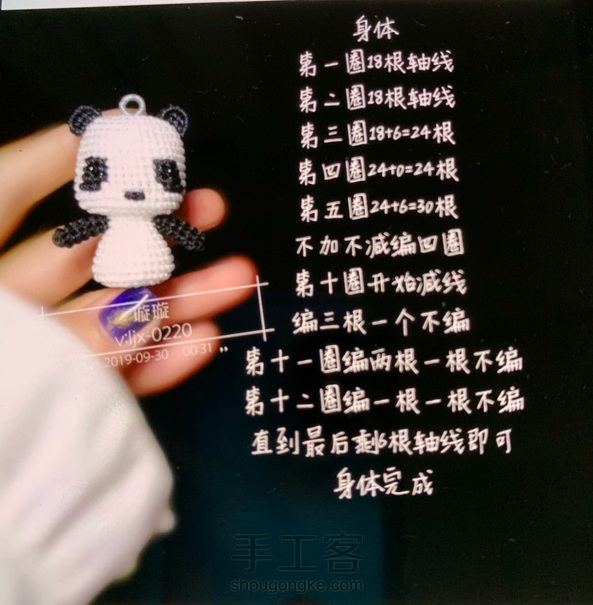 身体
第一圈18根轴线
第二圈18根轴线
第三圈18+6=24根
第四圈24+0=24根
第五圈24+6=30根
不加不减编四圈
第十圈开始减线
编三根一个不编
第十一圈编两根一根不编
第十二圈编一根一根不编
直到最后剩6根轴线即可
身体完成
璇璇
v:ljx-0220
2019-09-30 00:31
手工客
shougongke.com